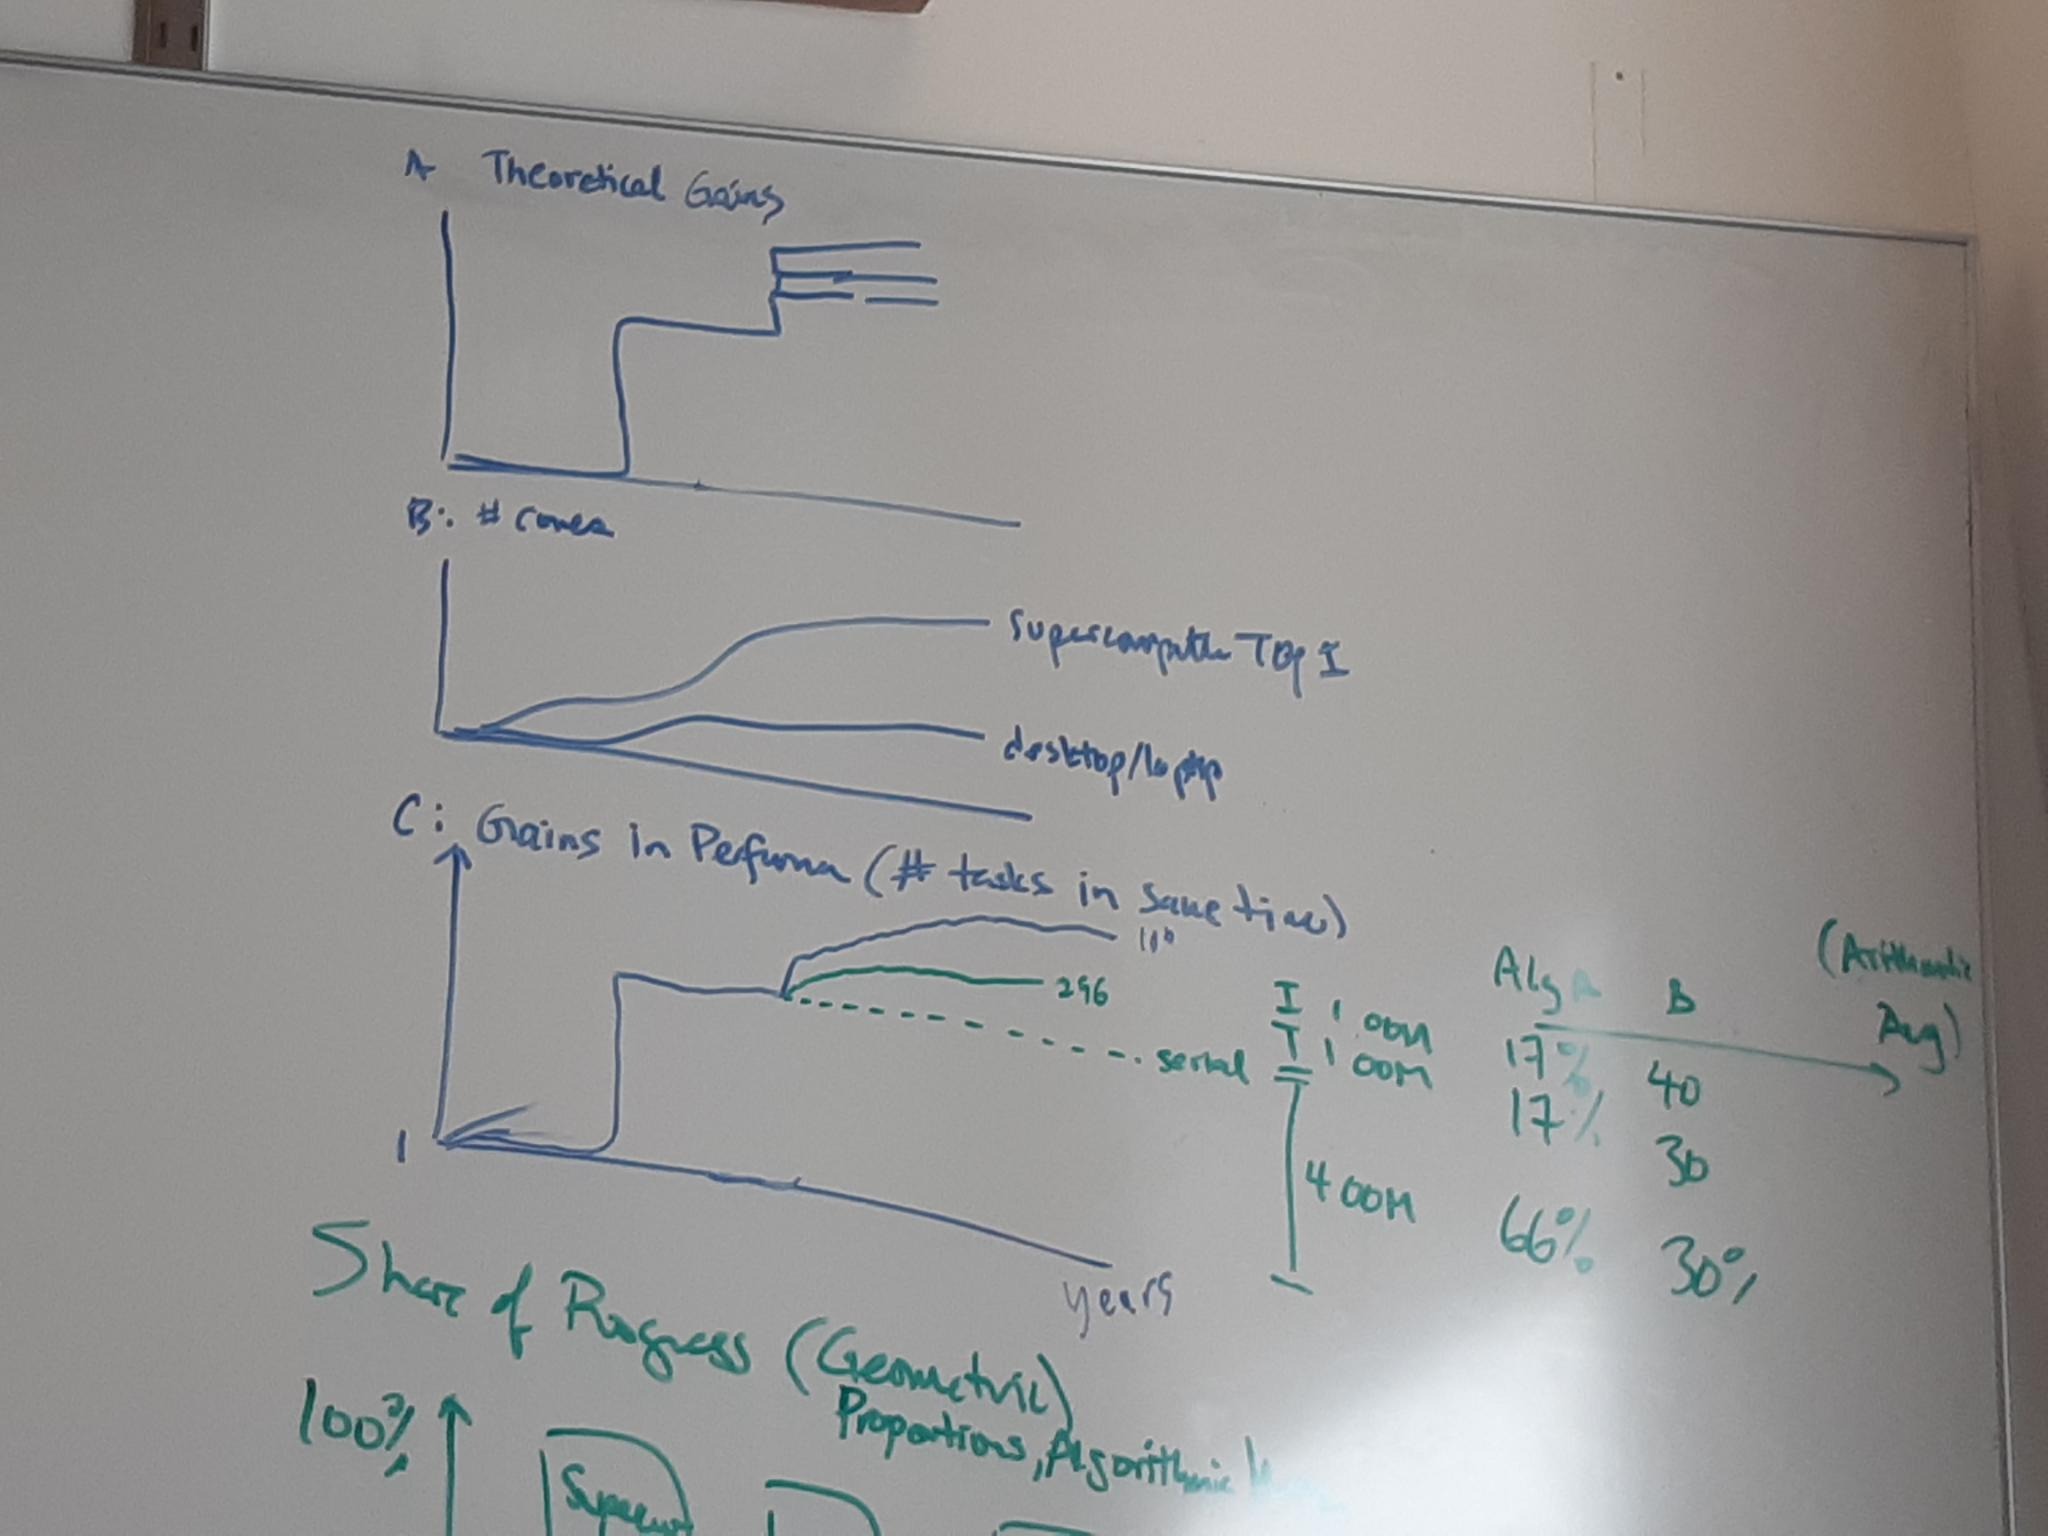 A Theoretical Gains
B: # cores
Supercomputer Top 1
desktop/laptop
C: Gains in Performa (# tasks in same time)
296
serial
1
years
I 1 00M
T 1 00M
400M
Alg A B (Arithmetic Avg)
17% 40
17% 30
66% 30%
Share of Progress (Geometric)
Proportions, Algorithmic
100%